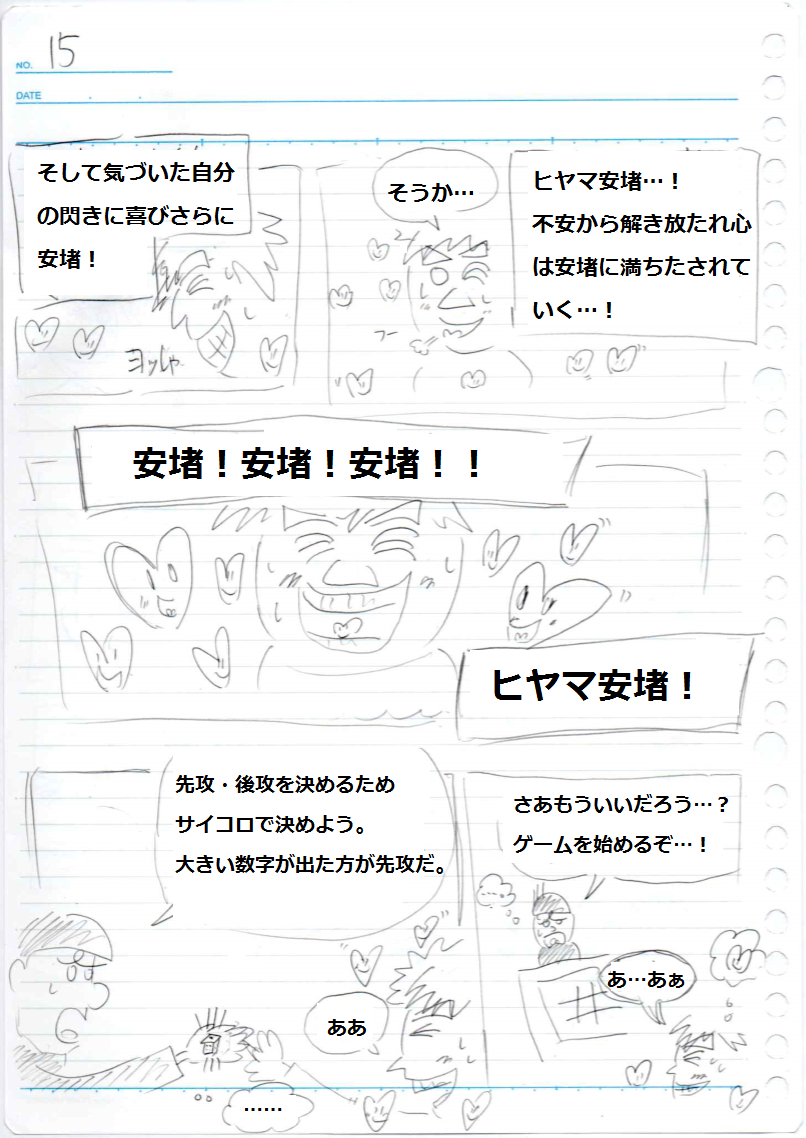 NO. 15
DATE
ヒヤマ安堵…！
不安から解き放たれ心
は安堵に満ちたされて
いく…！
そうか…
フー
そして気づいた自分
の閃きに喜びさらに
安堵！
ヨッしゃ
安堵！安堵！安堵！！
ヒヤマ安堵！
さあもういいだろう…？
ゲームを始めるぞ…！
あ…あぁ
先攻・後攻を決めるため
サイコロで決めよう。
大きい数字が出た方が先攻だ。
ああ
……